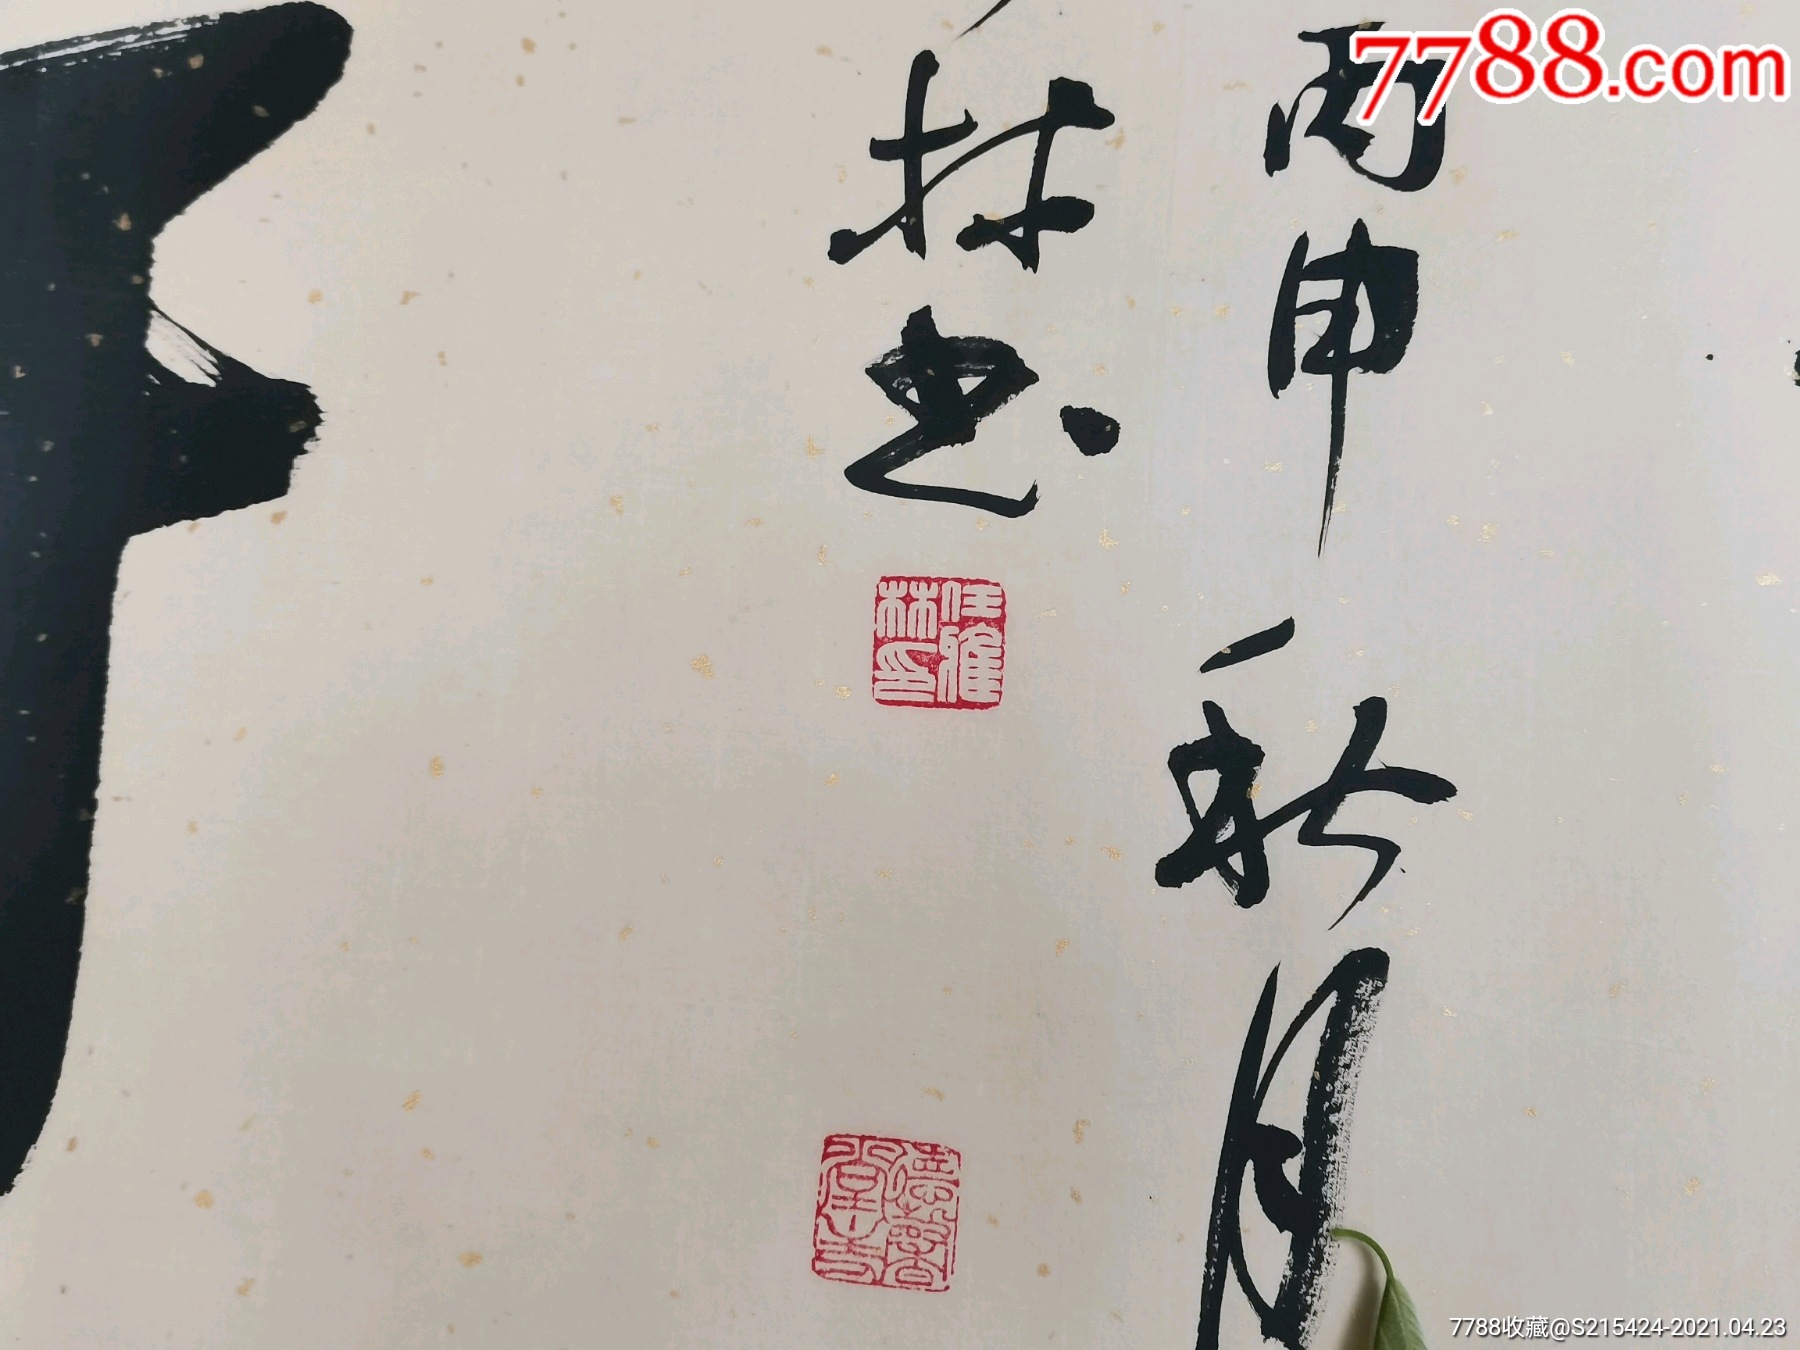 7788.com
丙申秋月
林书
任雅林印
7788收藏@S215424-2021.04.23